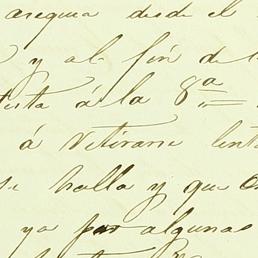 asequia desde el
y al fin de l
esta á la 8ª
á Vetérane lent
se halla y que
ya por algunas